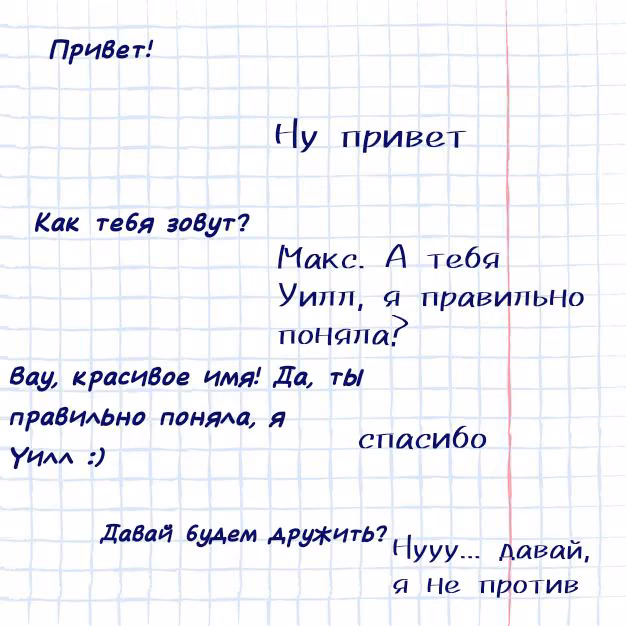 Привет!
Ну привет
Как тебя зовут?
Макс. А тебя
Уилл, я правильно
поняла?
Вау, красивое имя! Да, ты
правильно поняла, я
Уилл :)
спасибо
Давай будем дружить?
Нууу... давай,
я не против